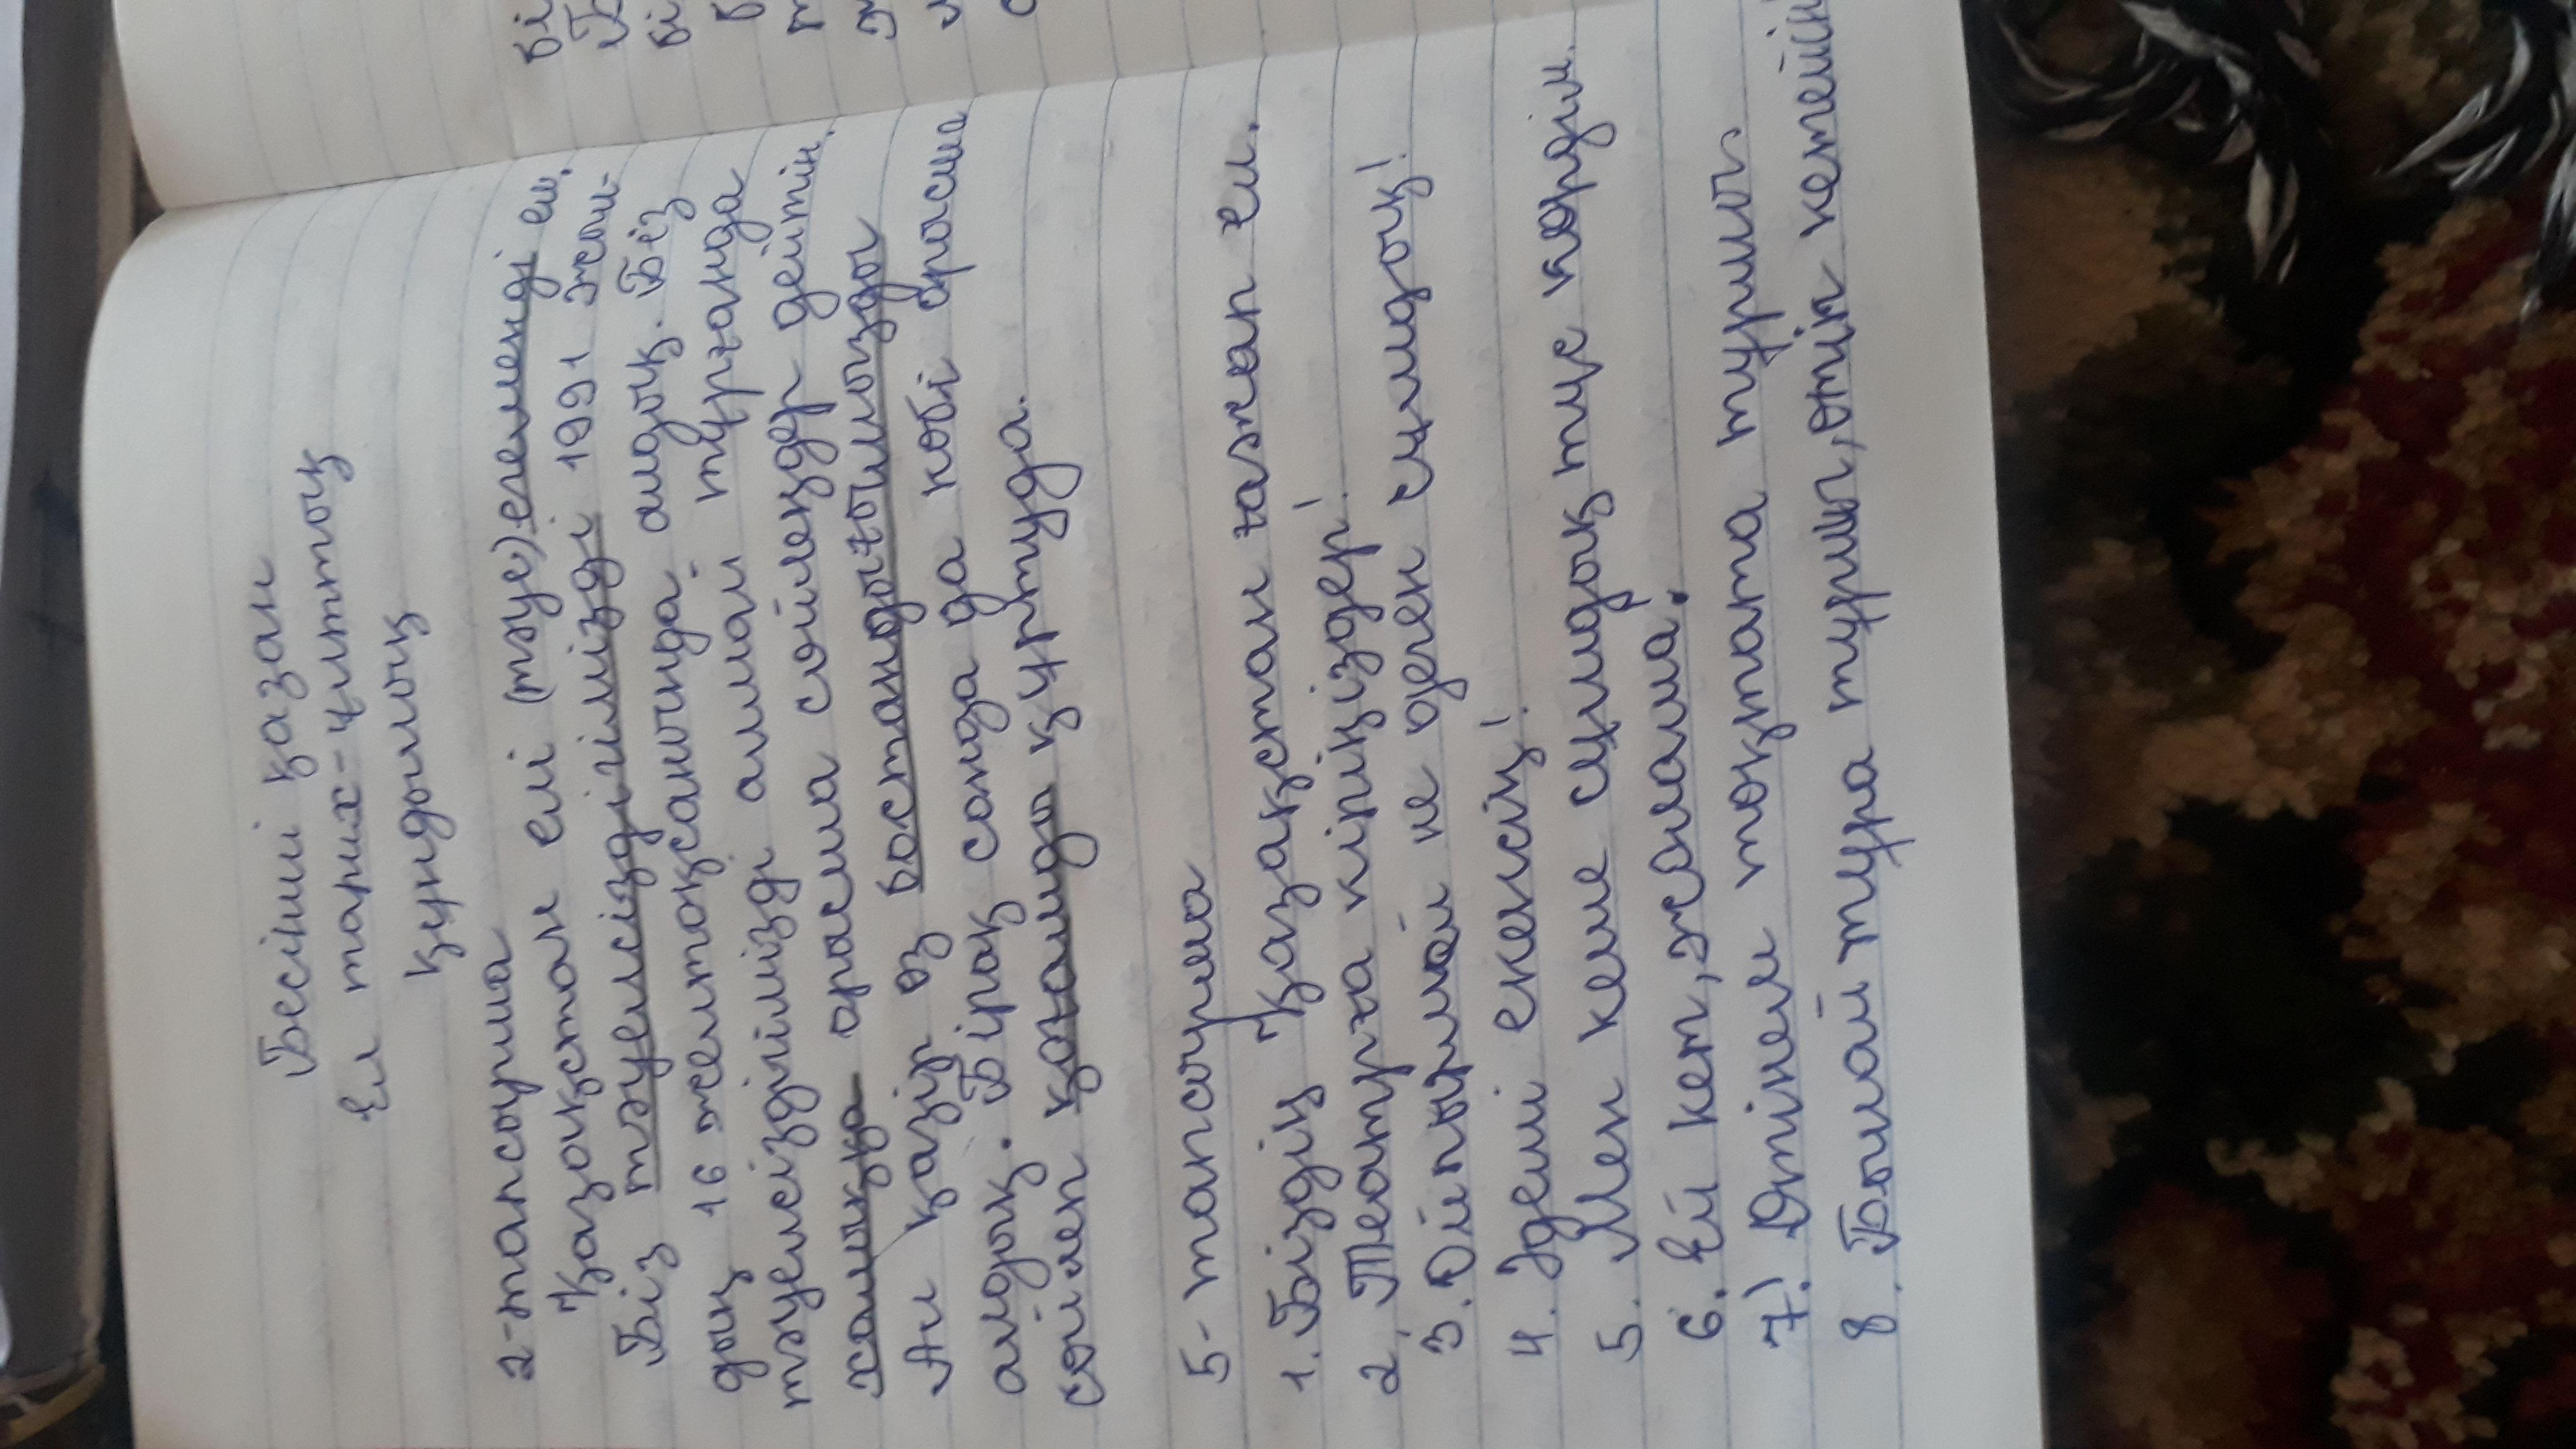 Бесінші қазан
Ел тарих-ұлттың
құндылық
2-тапсырма
Қазақстан елі (тәуе) егеменді ел.
Біз тәуелсіздігімізді 1991 жыл-
дың 16 желтоқсанында алдық. Біз
тәуелсіздігімізді алмай тұрғанда
халыққа орысша сөйлеңдер дейтін.
Ал қазір өз бостандығымызды
алдық. Бірақ сонда да көбі орысша
сөйлеп қоғамды құртуда.
5-тапсырма
1. Біздің Қазақстан ғажап ел.
2. Театрға кіріңіздер!
3. Ойпырмай не деген сұмдық!
4. Әдемі екенсің!
5. Мен кеше сұмдық түс көрдім.
6. Ей кет, жолама.
7! Өтінем тоқтата тұршы
8. Былай тұра тұршы, өтіп кетейін
бі
Б
бі